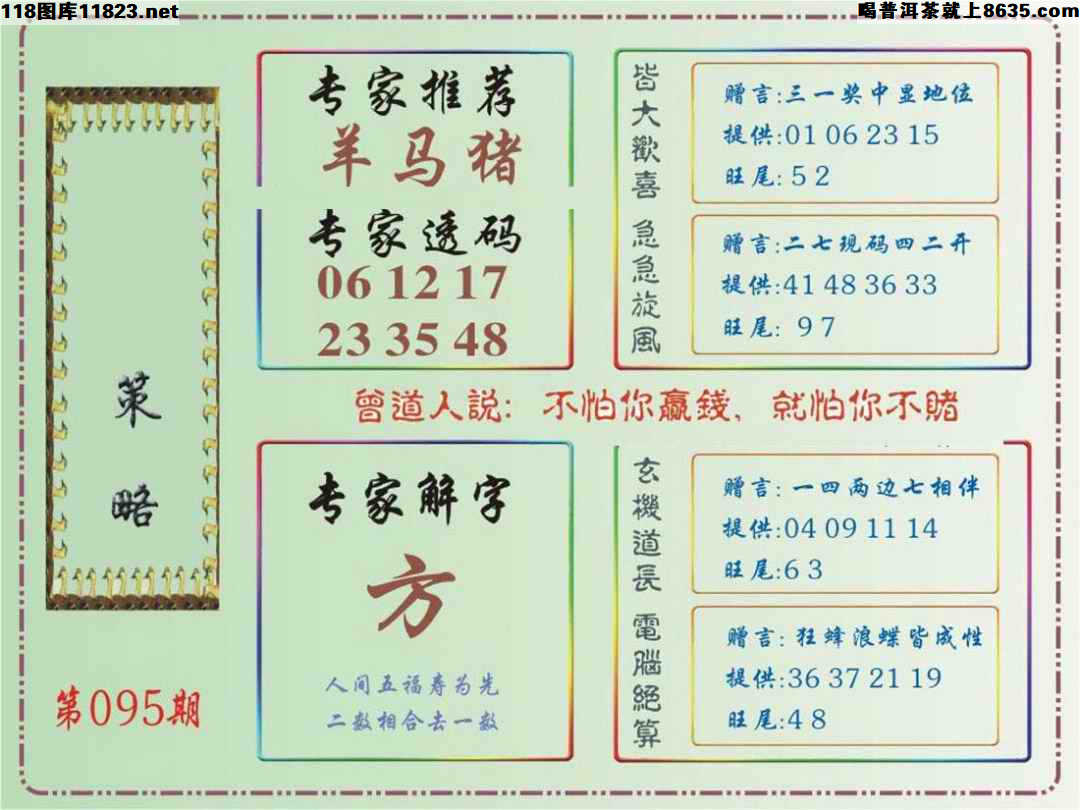 118图库11823.net
喝普洱茶就上8635.com
策
略
第095期
专家推荐
羊马猪
专家透码
06 12 17
23 35 48
皆大歡喜
赠言:三一奖中显地位
提供:01 06 23 15
旺尾: 5 2
急急旋風
赠言:二七现码四二开
提供:41 48 36 33
旺尾: 9 7
曾道人説: 不怕你贏錢, 就怕你不賭
专家解字
方
人间五福寿为先
二数相合去一数
玄機道長
赠言: 一四两边七相伴
提供:04 09 11 14
旺尾:6 3
電腦絕算
赠言: 狂蜂浪蝶皆成性
提供:36 37 21 19
旺尾:4 8